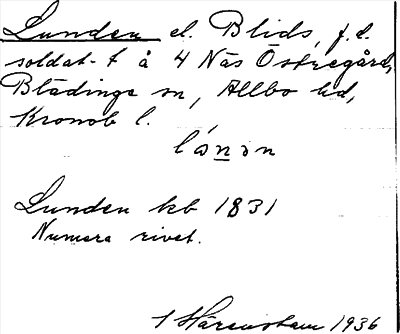 Lunden el. Blids, f.d.
soldat-t å 4 Näs Östregård,
Blädinge sn, Allbo hd,
Kronob l.
lánən
Lunden kb 1831
Numera rivet.
1936